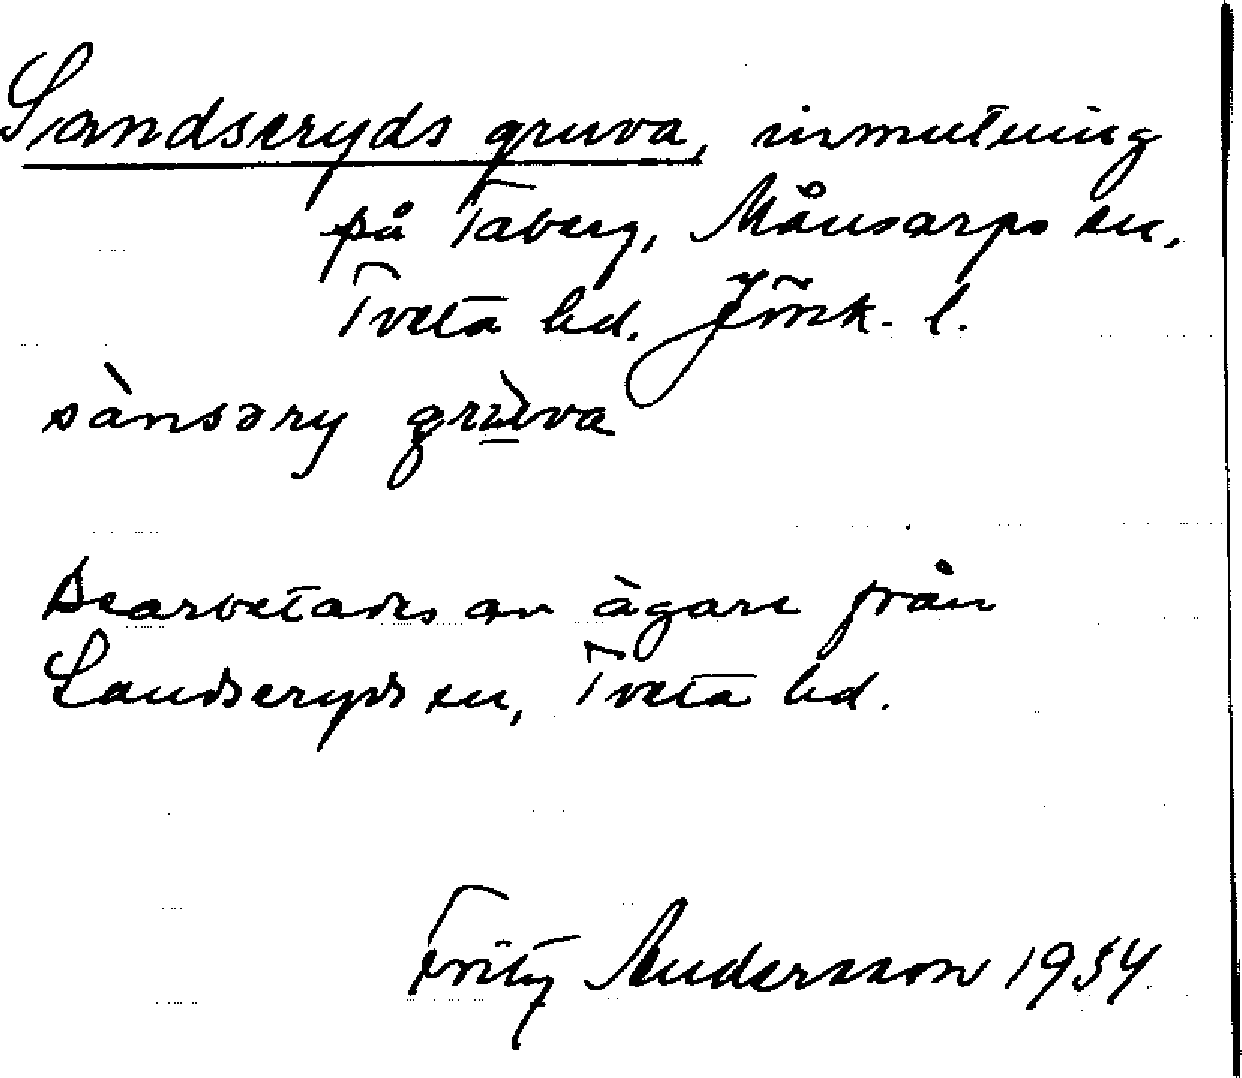 Sandseryds gruva, inmutning
på Taberg, Månsarps sn,
Tveta hd. Jönk. l.
sànsəry grùva
Bearbetades av ägare från
Sandseryds sn, Tveta hd.
Fritz Andersson 1934